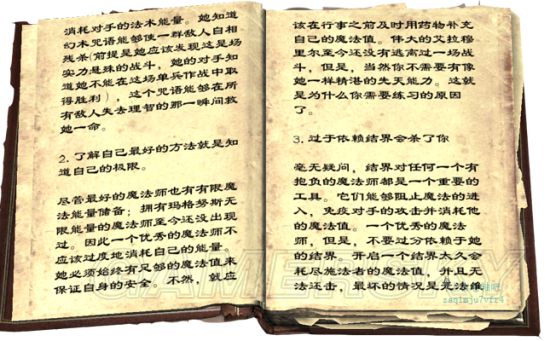 消耗对手的法术能量。她知道
幻术咒语能够使一群敌人自相
残杀(前提是她应该发现这是场
实力悬殊的战斗，她的对手知
道她不能在这场单兵作战中取
得胜利)，这个咒语能够在所
有敌人失去理智的那一瞬间救
她一命。
2. 了解自己最好的方法就是知
道自己的极限。
尽管最好的魔法师也有有限魔
法能量储备；拥有玛格努斯无
限能量的魔法师至今还没出现
过。因此一个优秀的魔法师不
应该过度地消耗自己的能量。
她必须始终有足够的魔法值来
保证自身的安全。不然，就应
该在行事之前及时用药物补充
自己的魔法值。伟大的艾拉穆
里尔至今还没有逃离过一场战
斗，但是，当然你不需要有像
她一样精湛的先天能力。这就
是为什么你需要练习的原因
了。
3. 过于依赖结界会杀了你
毫无疑问，结界对任何一个有
抱负的魔法师都是一个重要的
工具。它们能够阻止魔法的进
入，免疫对手的攻击并消耗他
的魔法值。一个优秀的魔法
师，但是，不要过分依赖于她
的结界。开启一个结界太久会
耗尽施法者的魔法值，并且无
法还击，最坏的情况是无法维
GAMERSKY
zaq1mju7vfr4